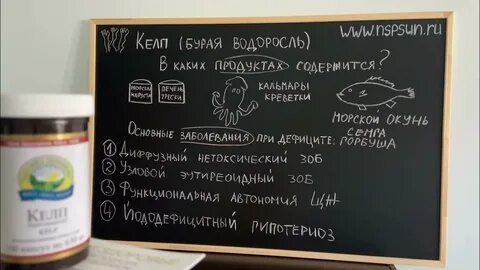 www.nspsun.ru
Келп (бурая водоросль)
В каких продуктах содержится?
морская капуста
печень трески
кальмары
креветки
морской окунь
семга
горбуша
Основные заболевания при дефиците:
1 Диффузный нетоксический зоб
2 Узловой эутиреоидный зоб
3 Функциональная автономия ЩЖ
4 Йододефицитный гипотериоз
Келп
KELP